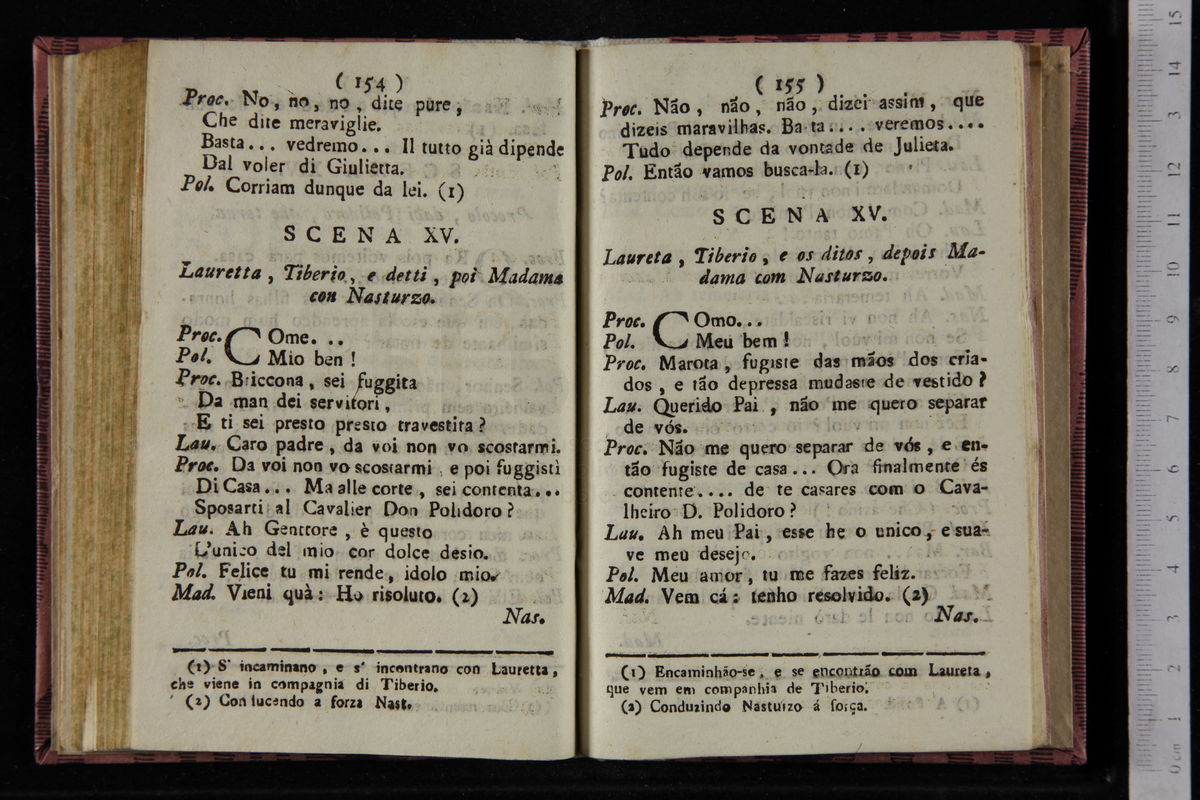 ( 154 )
Proc. No, no, no, dite pure,
Che dite meraviglie.
Basta... vedremo... Il tutto già dipende
Dal voler di Giulietta.
Pol. Corriam dunque da lei. (1)
SCENA XV.
Lauretta, Tiberio, e detti, poi Madama
con Nasturzo.
Proc. COme...
Pol. Mio ben!
Proc. Briccona, sei fuggita
Da man dei servitori,
E ti sei presto presto travestita?
Lau. Caro padre, da voi non vo scostarmi.
Proc. Da voi non vo scostarmi, e poi fuggisti
Di Casa... Ma alle corte, sei contenta...
Sposarti al Cavalier Don Polidoro?
Lau. Ah Genttore, è questo
L'unico del mio cor dolce desio.
Pol. Felice tu mi rende, idolo mio.
Mad. Vieni quà: Ho risoluto. (2)
Nas.
(1) S' incaminano, e s' incontrano con Lauretta,
che viene in compagnia di Tiberio.
(2) Conducendo a forza Nast.
( 155 )
Proc. Não, não, não, dizei assim, que
dizeis maravilhas. Basta.... veremos....
Tudo depende da vontade de Julieta.
Pol. Então vamos busca-la. (1)
SCENA XV.
Laureta, Tiberio, e os ditos, depois Ma-
dama com Nasturzo.
Proc. COmo...
Pol. Meu bem!
Proc. Marota, fugiste das mãos dos cria-
dos, e tão depressa mudaste de vestido?
Lau. Querido Pai, não me quero separar
de vós.
Proc. Não me quero separar de vós, e en-
tão fugiste de casa... Ora finalmente és
contente.... de te casares com o Cava-
lheiro D. Polidoro?
Lau. Ah meu Pai, esse he o unico, e sua-
ve meu desejo.
Pol. Meu amor, tu me fazes feliz.
Mad. Vem cá: tenho resolvido. (2)
Nas.
(1) Encaminhão-se, e se encontrão com Laureta,
que vem em companhia de Tiberio.
(2) Conduzindo Nasturzo á força.